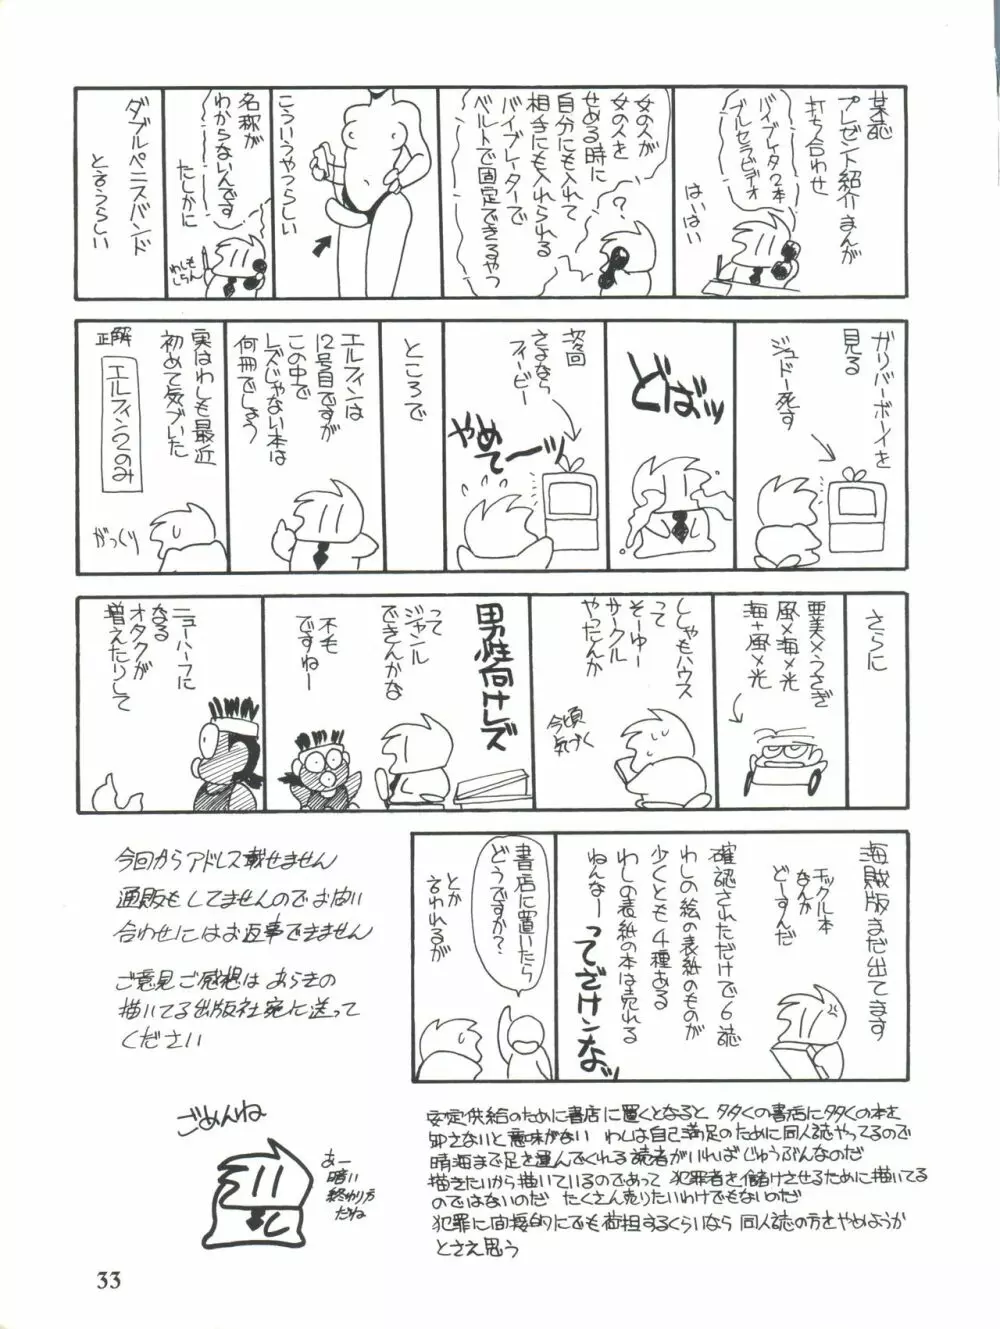 某誌
プレゼント紹介まんが
打ち合わせ
バイブレイタ2本
ブルセラビデオ
はいはい
女の人が
女の人を
せめる時に
自分にも入れて
相手にも入れられる
バイブレイターで
ベルトで固定できるやつ
？
こういうやつらしい
名称が
わからないんです
たしかに
わしもしらん
ダブルペニスバンド
とゆうらしい
ガリバーボーイを
見る
ジュドー死す
どばッ
次回
さよなら
フィービー
やめて〜ッ
ところで
エルフィンは
12号目ですが
この中で
レズじゃない本は
何冊でしょう
実はわしも最近
初めて気づいた
正解
エルフィン2のみ
がっくり
さらに
亜美×うさぎ
風×海×光
海+風×光
ししゃもハウス
って
そーゆー
サークル
やったんか
今頃
気づく
男性向けレズ
って
ジャンル
できんかな
不毛
ですねー
ニューハーフに
なる
オタクが
増えたりして
海賊版まだ出てます
チックル本
なんか
どーすんだ
確認されただけで6誌
わしの絵の表紙のものが
少くとも4種ある
わしの表紙の本は売れる
ねんなー
ってざけンなッ
書店に置いたら
どうですか？
とか
言われるが
今回からアドレス載せません
通販もしてませんのでお問い
合わせにはお返事できません
ご意見ご感想はあらきの
描いてる出版社宛に送って
ください
ごめんね
あー
暗い
終わり方
だね
安定供給のために書店に置くとなると 多くの書店に多くの本を
卸さないと意味がない わしは自己満足のために同人誌やってるので
晴海まで足を運んでくれる読者がいればじゅうぶんなのだ
描きたいから描いているのであって 犯罪者を儲けさせるために描いてる
のではないのだ たくさん売りたいわけでもないのだ
犯罪に間接的にでも荷担するくらいなら 同人誌の方をやめようか
とさえ思う
33